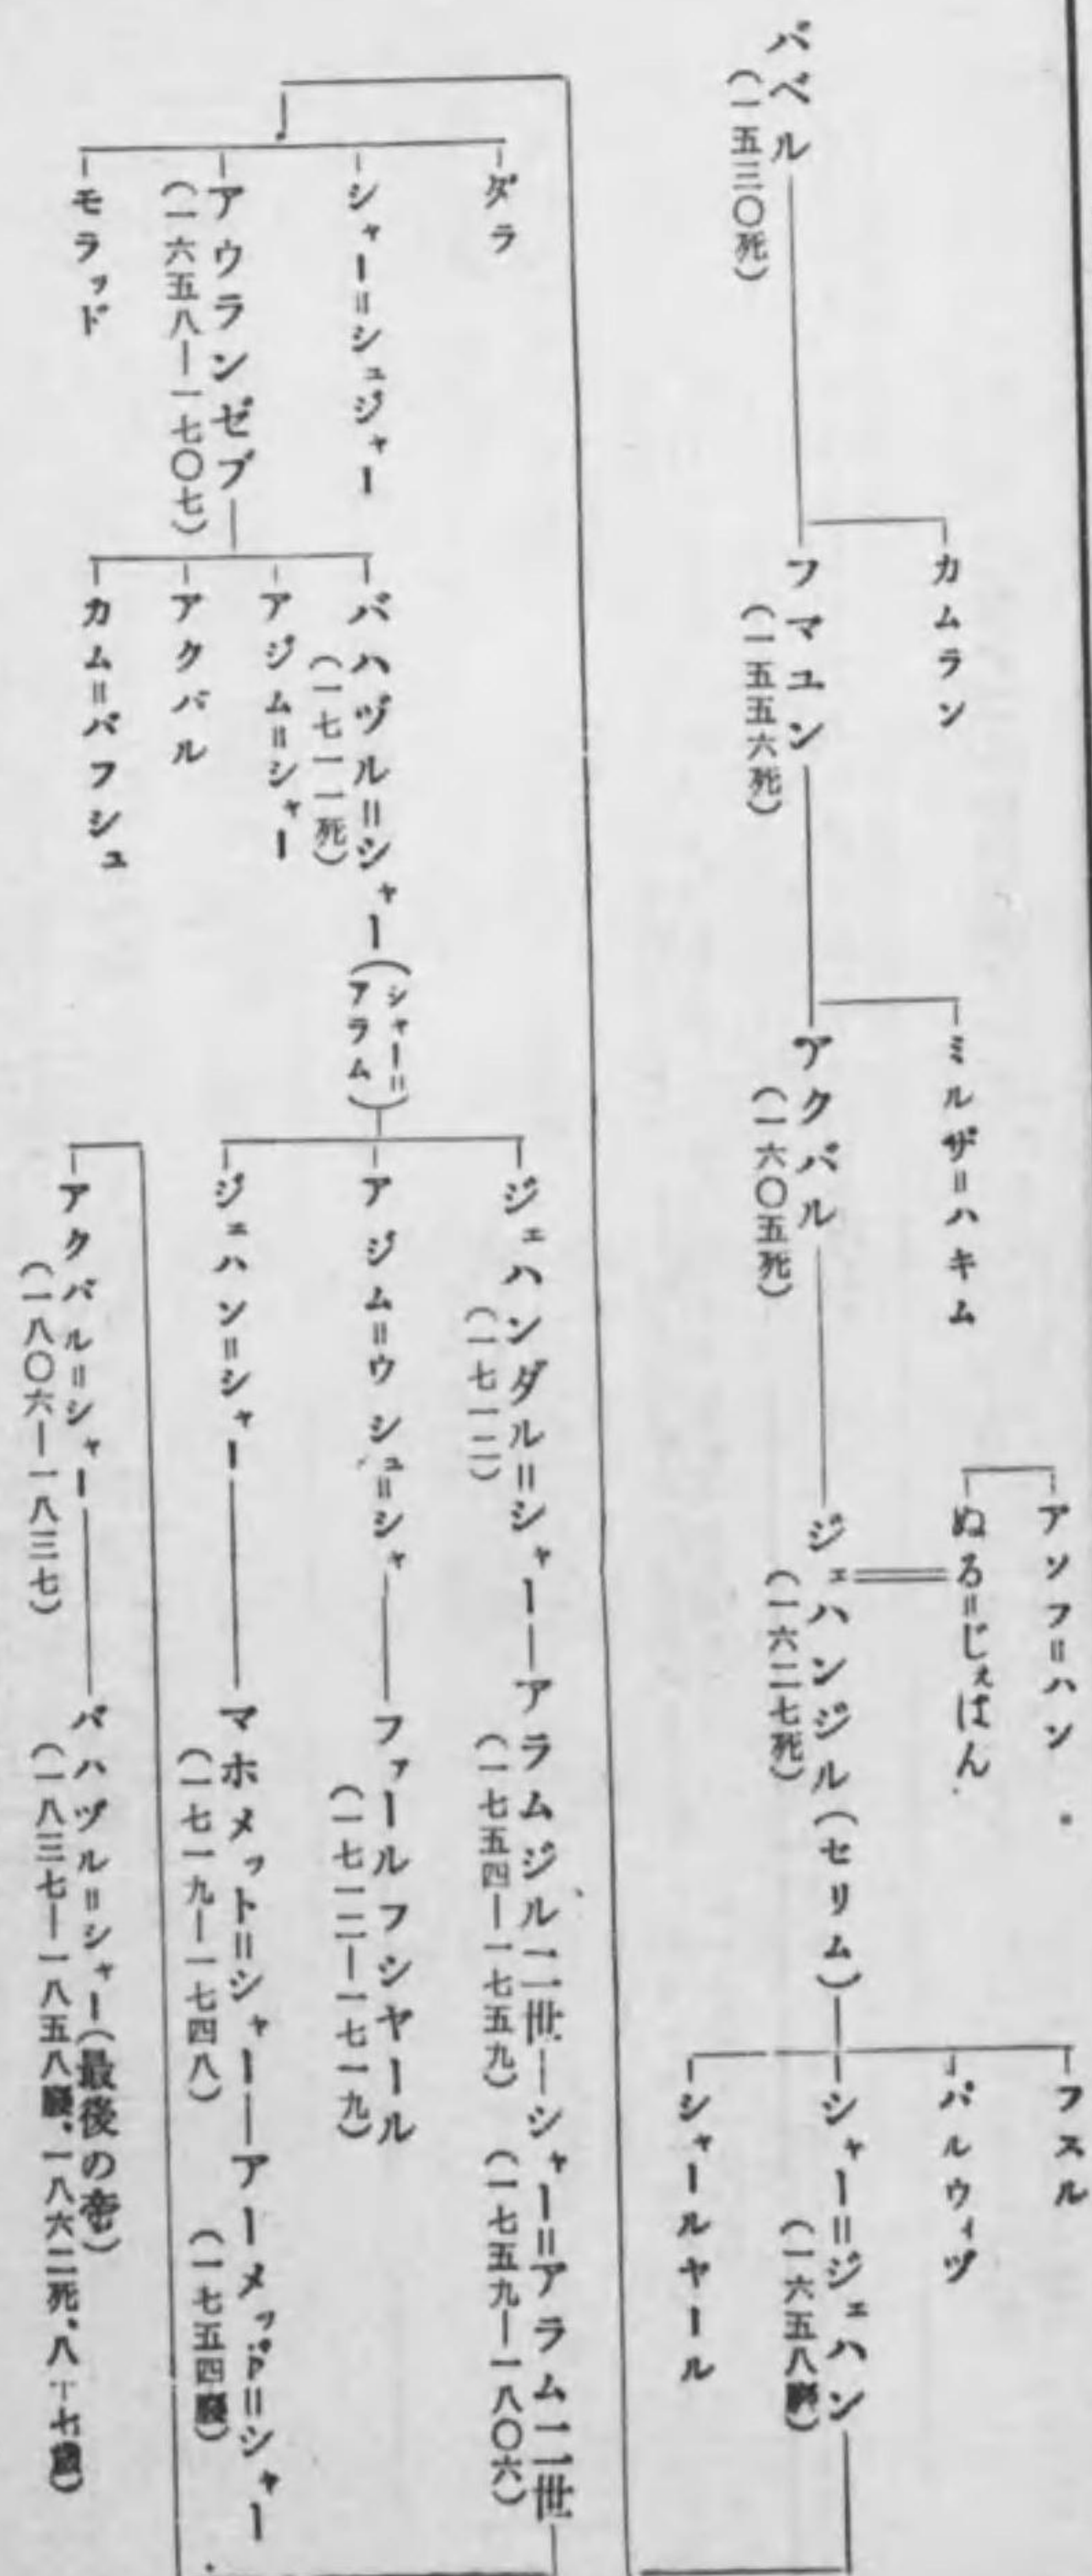 バベル
(一五三〇死)
カムラン
フマユン
(一五五六死)
ミルザ=ハキム
アクバル
(一六〇五死)
アソフ=ハン
ぬる=じぇはん
ジェハンジル(セリム)
(一六二七死)
フスル
パルウィヅ
シャー=ジェハン
(一六五八廢)
シャールヤール
ダラ
シャー=シュジャー
アウランゼブ
(一六五八―一七〇七)
モラッド
バハヅル=シャー(シャー=アラム)
(一七一一死)
アジム=シャー
アクバル
カム=バフシュ
ジェハンダル=シャー―アラムジル二世―シャー=アラム二世
(一七一二)
(一七五四―一七五九)
(一七五九―一八〇六)
アジム=ウシュ=シャ―ファールフシヤール
(一七一二―一七一九)
ジェハン=シャー―マホメット=シャー―アーメッド=シャー
(一七一九―一七四八)
(一七五四廢)
アクバル=シャー―バハヅル=シャー(最後の帝)
(一八〇六―一八三七)
(一八三七―一八五八廢、一八六二死、八十七歳)